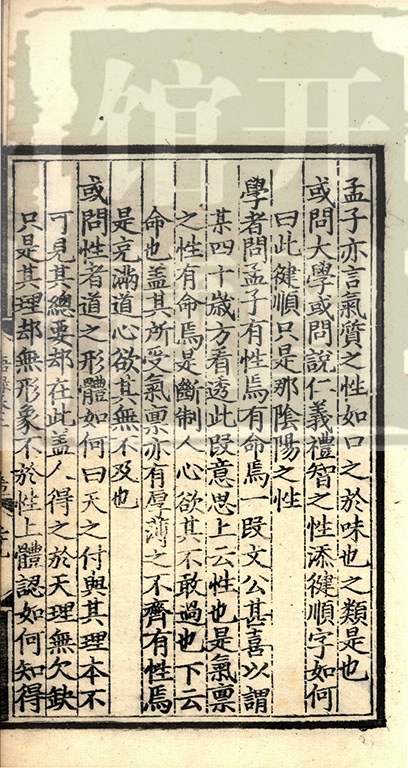 孟子亦言氣質之性如口之於味也之類是也
或問大學或問說仁義禮智之性添健順字如何
曰此健順只是那陰陽之性
學者問孟子有性焉有命焉一段文公甚喜以謂
某四十歲方看透此段意思上云性也是氣禀
之性有命焉是斷制人心欲其不敢過也下云
命也盖其所受氣禀亦有厚薄之不齊有性焉
是充滿道心欲其無不及也
或問性者道之形體如何曰天之付與其理本不
可見其總要却在此盖人得之於天理無欠缺
只是其理却無形象不於性上體認如何知得